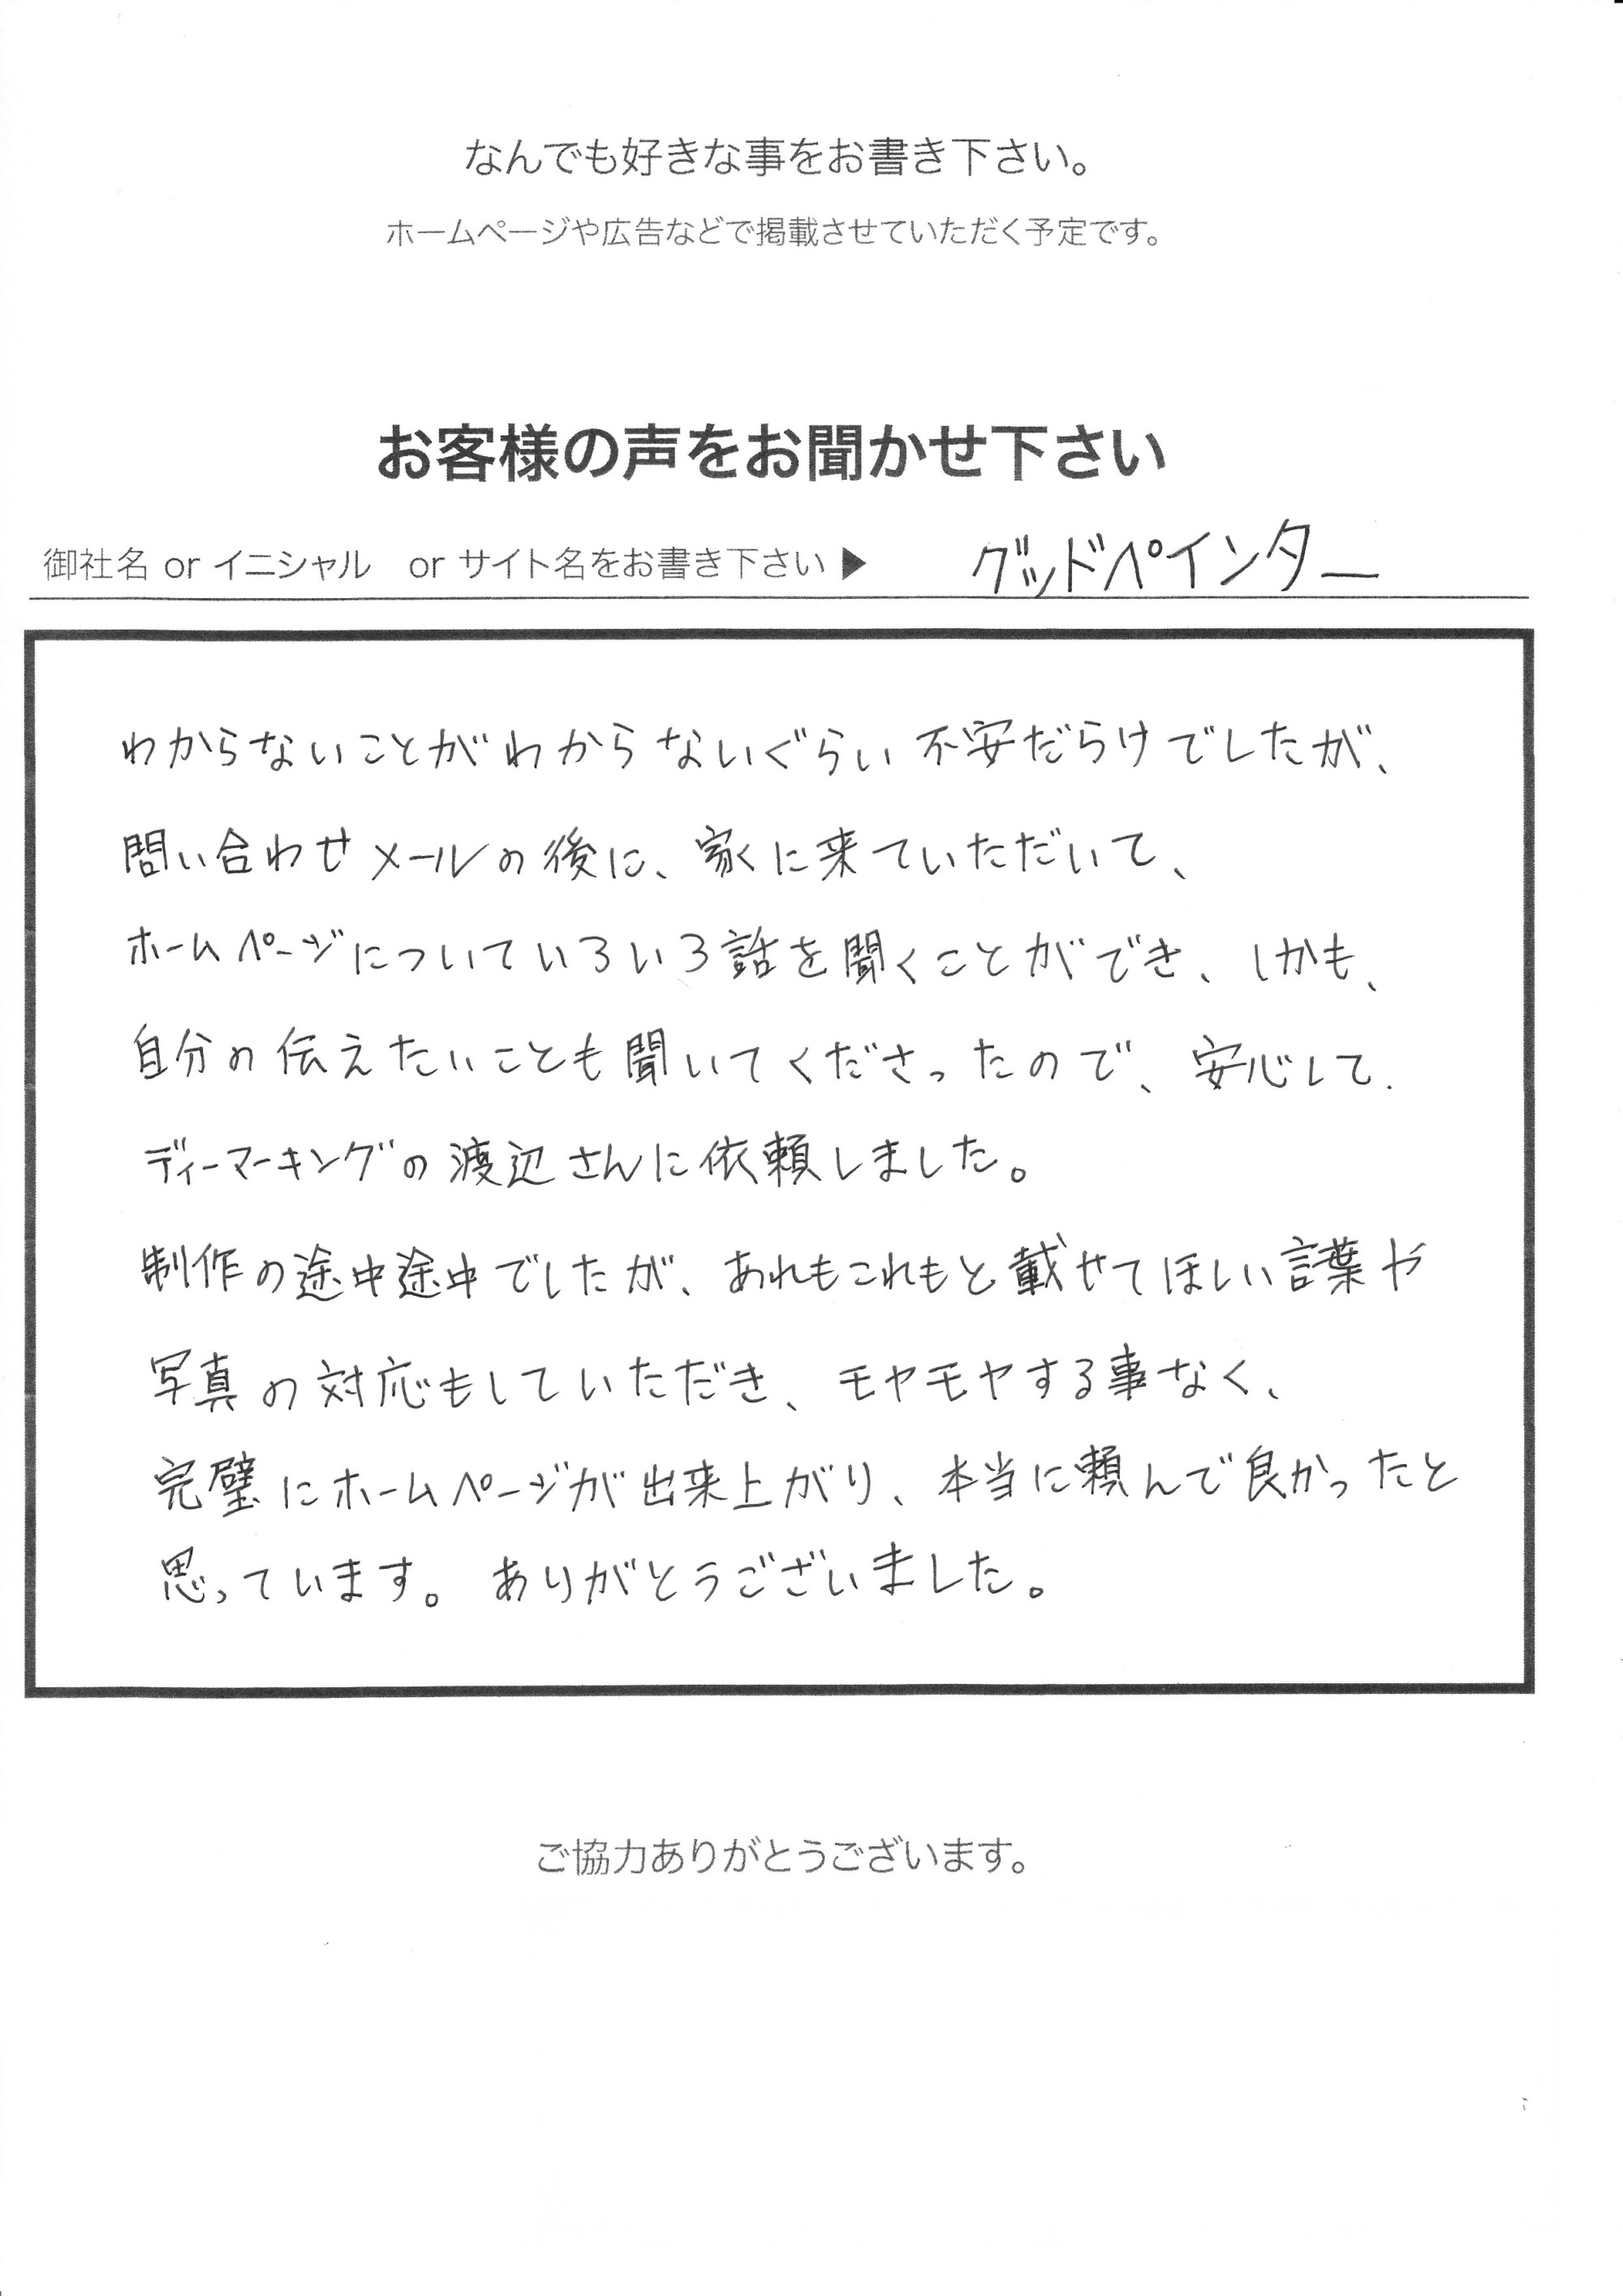 なんでも好きな事をお書き下さい。
ホームページや広告などで掲載させていただく予定です。
お客様の声をお聞かせ下さい
御社名 or イニシャル　or サイト名をお書き下さい▶ グッドペインター
わからないことがわからないぐらい不安だらけでしたが、
問い合わせメールの後に、家に来ていただいて、
ホームページについていろいろ話を聞くことができ、しかも、
自分の伝えたいことも聞いてくださったので、安心して、
ディーマーキングの渡辺さんに依頼しました。
制作の途中途中でしたが、あれもこれもと載せてほしい言葉や
写真の対応もしていただき、モヤモヤする事なく、
完璧にホームページが出来上がり、本当に頼んで良かったと
思っています。ありがとうございました。
ご協力ありがとうございます。